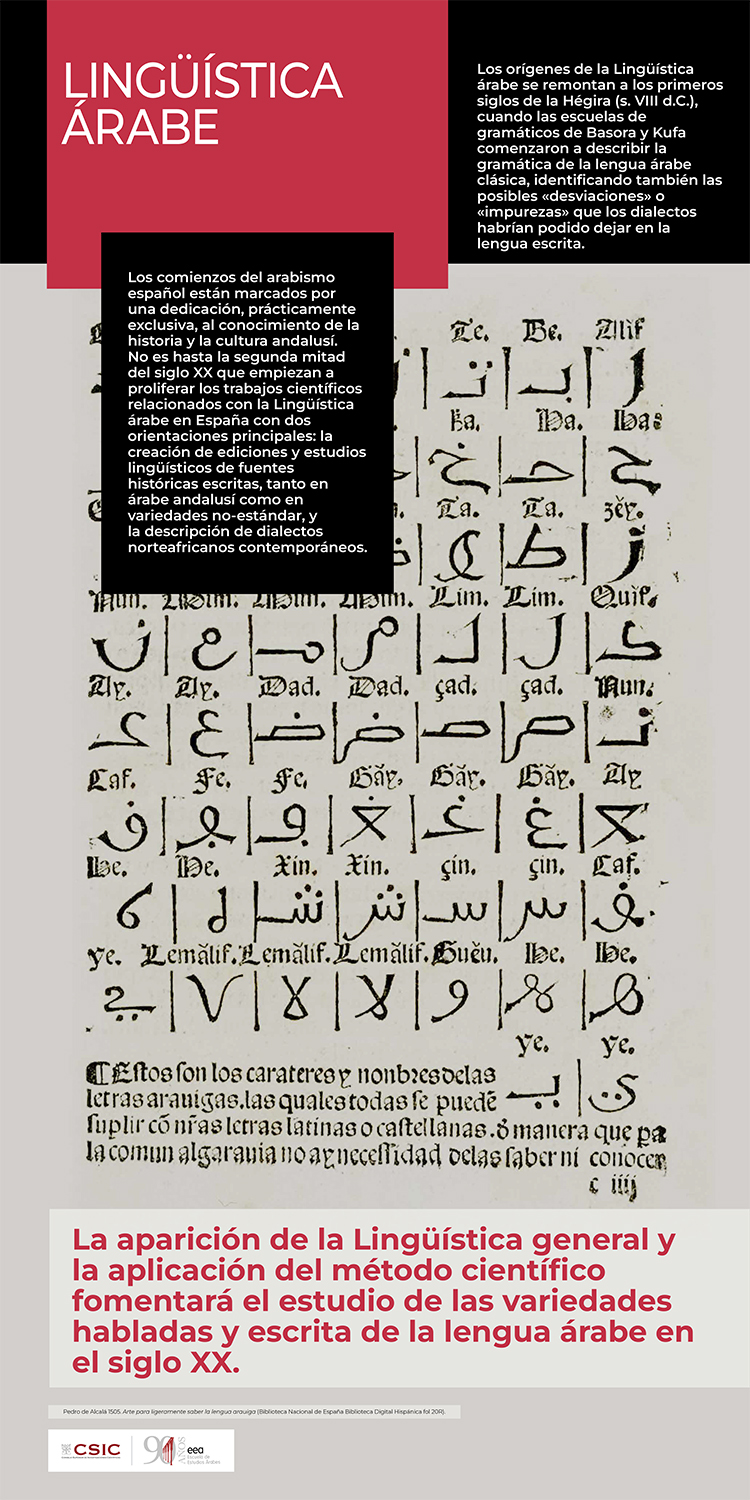 LINGÜÍSTICA
ÁRABE
Los orígenes de la Lingüística
árabe se remontan a los primeros
siglos de la Hégira (s. VIII d.C.),
cuando las escuelas de
gramáticos de Basora y Kufa
comenzaron a describir la
gramática de la lengua árabe
clásica, identificando también las
posibles «desviaciones» o
«impurezas» que los dialectos
habrían podido dejar en la
lengua escrita.
Los comienzos del arabismo
español están marcados por
una dedicación, prácticamente
exclusiva, al conocimiento de la
historia y la cultura andalusí.
No es hasta la segunda mitad
del siglo XX que empiezan a
proliferar los trabajos científicos
relacionados con la Lingüística
árabe en España con dos
orientaciones principales: la
creación de ediciones y estudios
lingüísticos de fuentes
históricas escritas, tanto en
árabe andalusí como en
variedades no-estándar, y
la descripción de dialectos
norteafricanos contemporáneos.
Te. Be. Alif
Ha. Ha.
Ta. Ta.
Nun. Mim. Mim. Mim. Lim. Lim.
Ay. Ay. Dad. Dad. çad. çad. Nun.
Caf. Fe. Fe. Gãy. Gãy. Gãy. Ay
He. He. Xin. Xin. çin. çin. Caf.
ye. Lemãlif. Lemãlif. Lemãlif. Guẽu. He. He.
ye. ye.
¶ Estos son los carateres y nonbres delas
letras arauigas. las quales todas se puedẽ
suplir cõ nr̃as letras latinas o castellanas. õ manera que pa
la comun algarauia no ay necessidad delas saber ni conocer
c iiij
La aparición de la Lingüística general y
la aplicación del método científico
fomentará el estudio de las variedades
habladas y escrita de la lengua árabe en
el siglo XX.
Pedro de Alcalá 1505. Arte para ligeramente saber la lengua arauiga (Biblioteca Nacional de España Biblioteca Digital Hispánica fol 20R).
CSIC
90 AÑOS
eea
Escuela de
Estudios Árabes